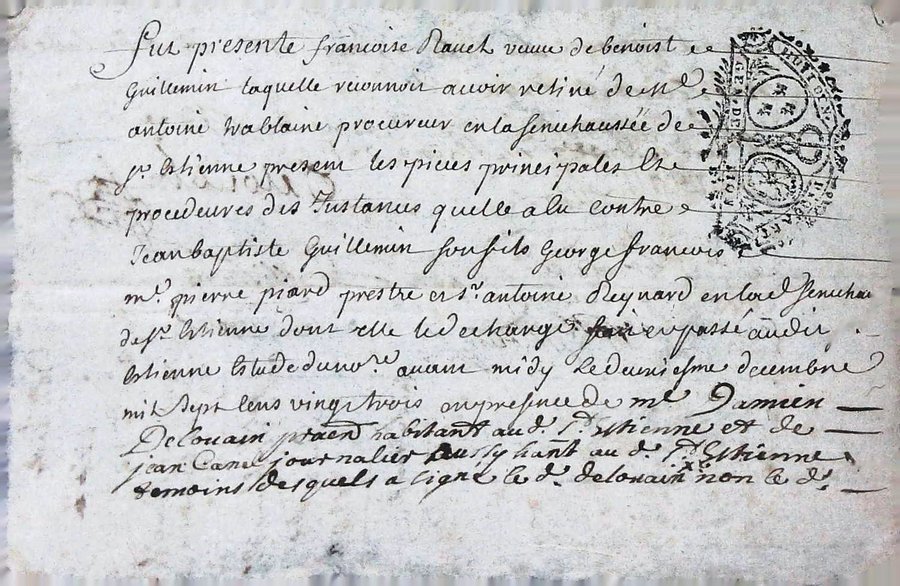 fut presente francoise Ravel veuve de benoist
Guillemin laquelle reconnoit avoir retiré de Me
antoine trablaine procureur en la senechaussée de
st Estienne present les pieces principales et
procedeures des Instances quelle a eu contre
Jean baptiste Guillemin son fils George francois
mre pierre piard prestre et sr antoine Reynard en lad senechau
de st Estienne dont elle le decharge fait et passé audit
Estienne Estude du nore avant midy le deuxiesme decembre
mil sept cens vingt trois en presence de me Damien
Delouain praen habitant aud st Estienne et de
jean Cane journalier aussy hant au d st Estienne
temoins desquels a signé le dt delouain non le dt
GEN DE
HUIT DEN